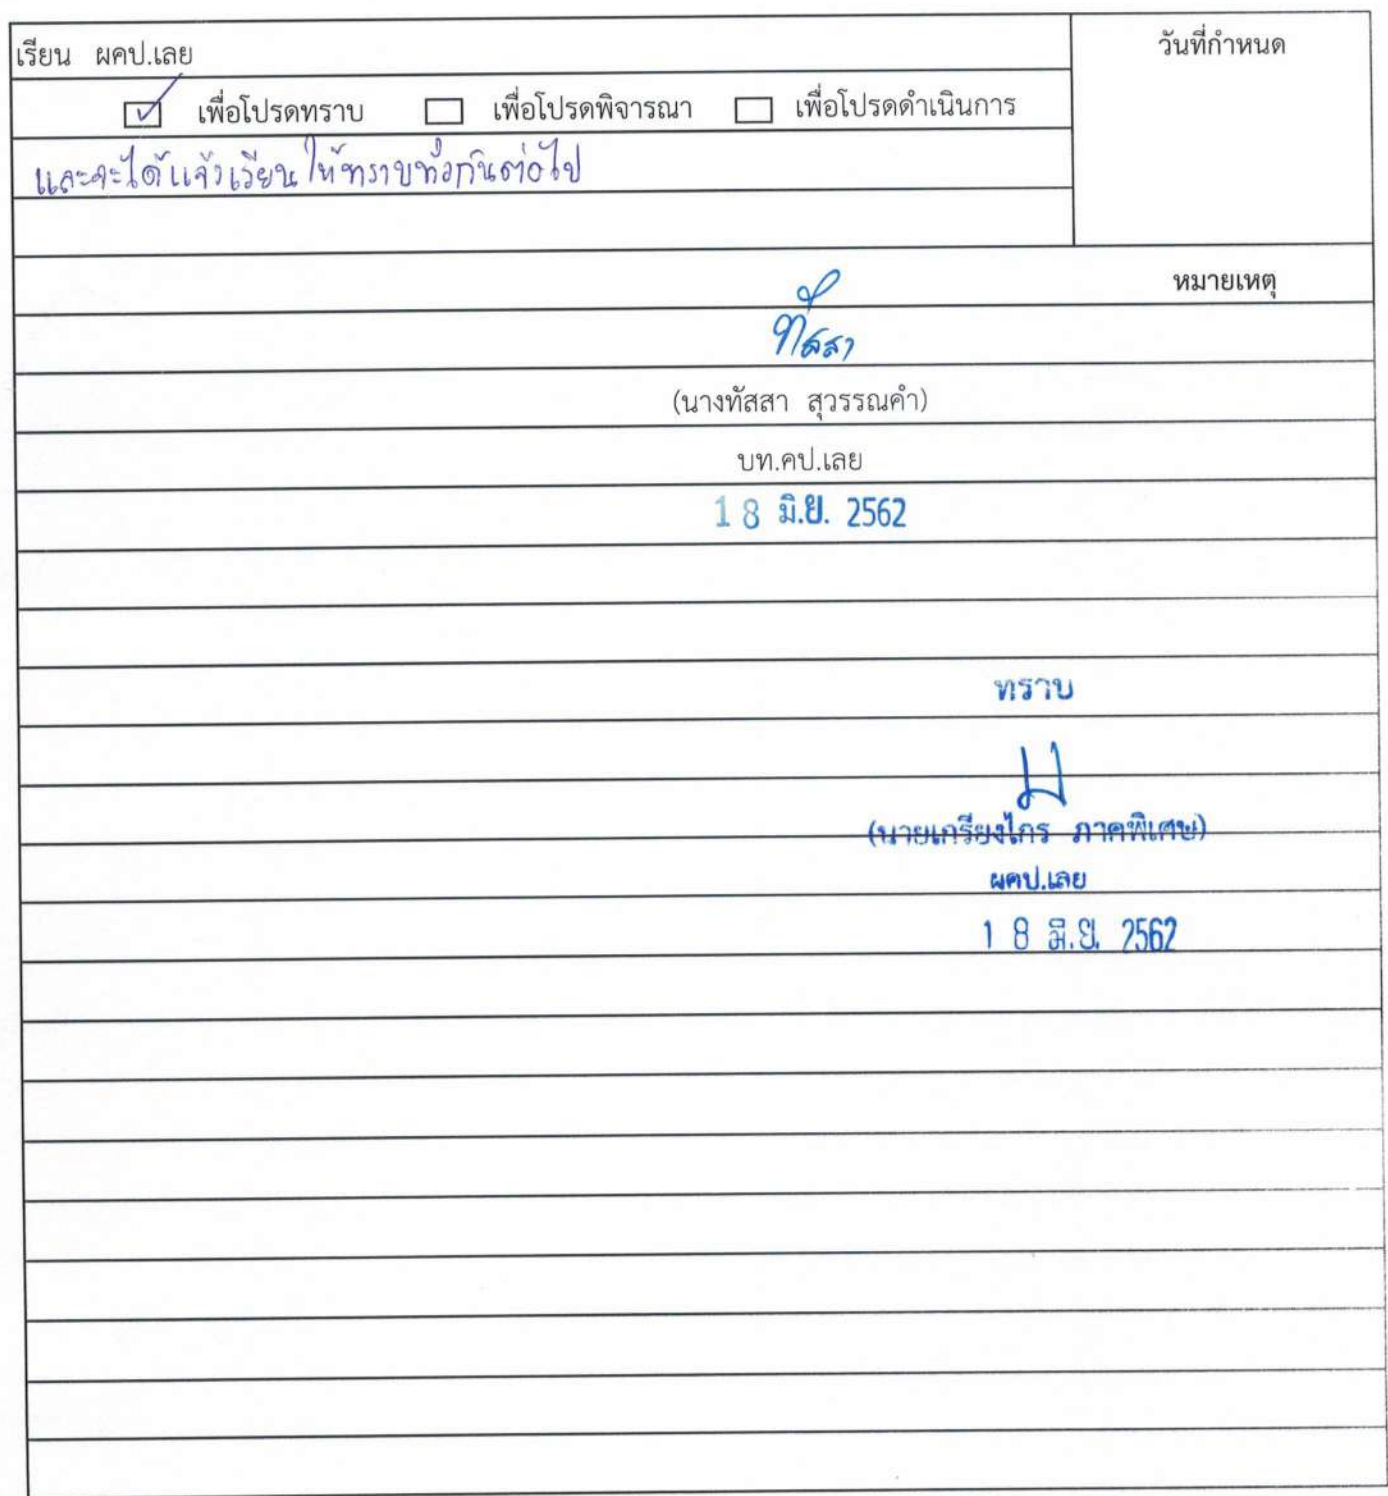 เรียน ผคป.เลย
วันที่กำหนด
☑ เพื่อโปรดทราบ ☐ เพื่อโปรดพิจารณา ☐ เพื่อโปรดดำเนินการ
และจะได้แจ้งเวียนให้ทราบทั่วกันต่อไป
หมายเหตุ
ทัสสา
(นางทัสสา สุวรรณคำ)
บท.คป.เลย
18 มิ.ย. 2562
ทราบ
(นายเกรียงไกร ภาคพิเศษ)
ผคป.เลย
18 มิ.ย. 2562